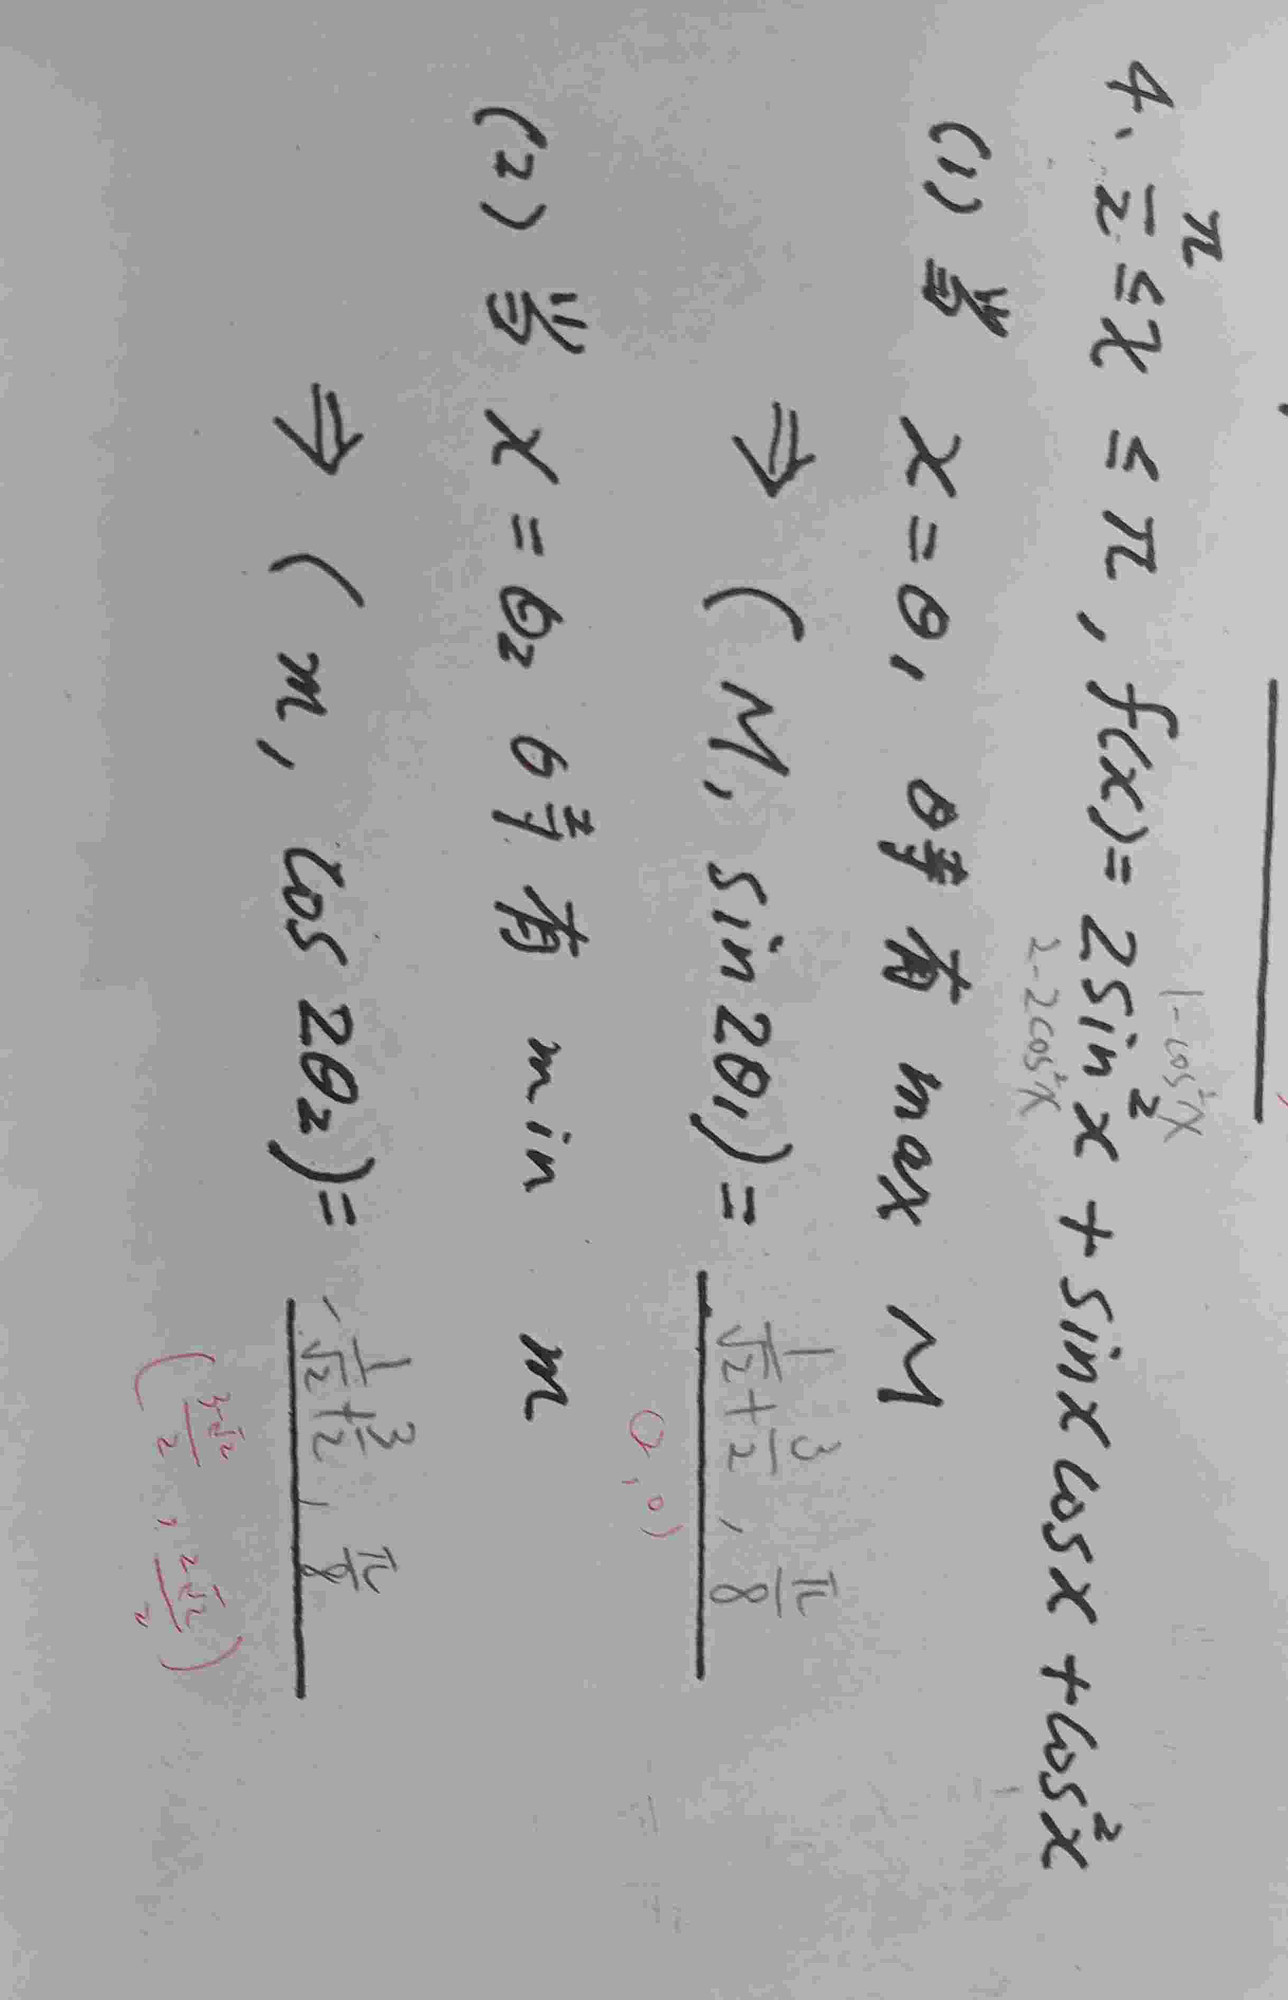 4. π/2 ≤ x ≤ π, f(x) = 2sin²x + sinx cosx + cos²x
1-cos²x
2-2cos²x
(1) 當 x = θ₁ 時有 max M
⇒ (M, sin2θ₁) = 1/√2 + 3/2, π/8
0, 0)
(2) 當 x = θ₂ 時有 min m
⇒ (m, cos2θ₂) = -1/√2 + 3/2, π/8